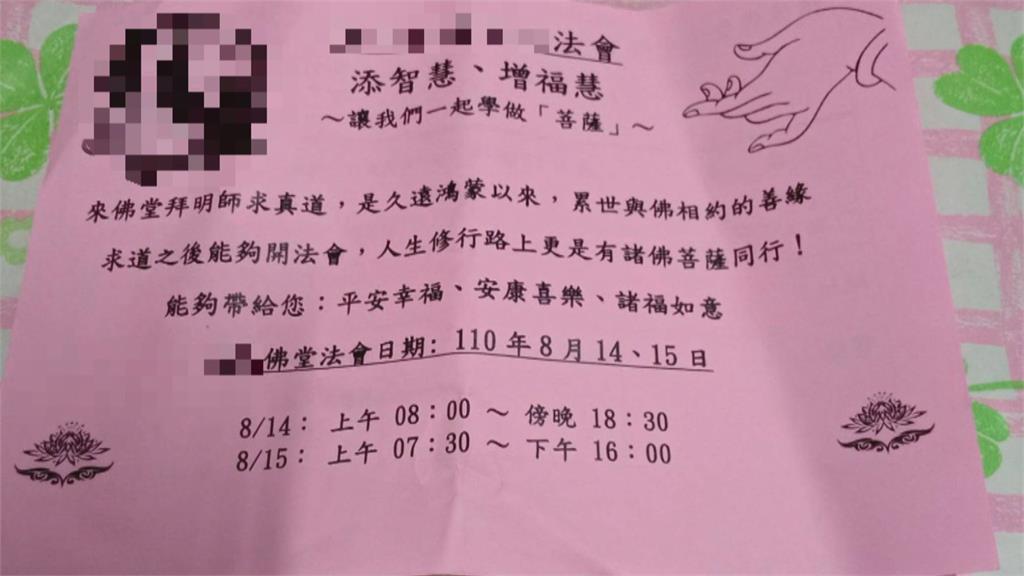 法會
添智慧、增福慧
～讓我們一起學做「菩薩」～
來佛堂拜明師求真道，是久遠鴻蒙以來，累世與佛相約的善緣
求道之後能夠開法會，人生修行路上更是有諸佛菩薩同行！
能夠帶給您：平安幸福、安康喜樂、諸福如意
佛堂法會日期: 110 年 8 月 14、15 日
8/14： 上午 08：00 ～ 傍晚 18：30
8/15： 上午 07：30 ～ 下午 16：00